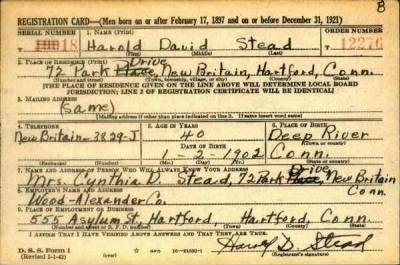 8
REGISTRATION CARD—(Men born on or after February 17, 1897 and on or before December 31, 1921)
SERIAL NUMBER 1. NAME (Print) ORDER NUMBER
18 Harold David Stead 12276
(First) (Middle) (Last)
2. PLACE OF RESIDENCE (Print)
Drive
72 Park Place, New Britain, Hartford, Conn.
(Number and street) (Town, township, village, or city) (County) (State)
[THE PLACE OF RESIDENCE GIVEN ON THE LINE ABOVE WILL DETERMINE LOCAL BOARD
JURISDICTION; LINE 2 OF REGISTRATION CERTIFICATE WILL BE IDENTICAL]
3. MAILING ADDRESS
(same)
(Mailing address if other than place indicated on line 2. If same insert word same)
4. TELEPHONE 5. AGE IN YEARS 6. PLACE OF BIRTH
New Britain-3829-J 40 Deep River
DATE OF BIRTH (Town or county)
1-2-1902 Conn.
(Exchange) (Number) (Mo.) (Day) (Yr.) (State or country)
7. NAME AND ADDRESS OF PERSON WHO WILL ALWAYS KNOW YOUR ADDRESS
Drive
Mrs. Cynthia D. Stead, 72 Park Place, New Britain
Conn.
8. EMPLOYER'S NAME AND ADDRESS
Wood-Alexander Co.
9. PLACE OF EMPLOYMENT OR BUSINESS
555 Asylum St, Hartford, Hartford, Conn.
(Number and street or R. F. D. number) (Town) (County) (State)
I AFFIRM THAT I HAVE VERIFIED ABOVE ANSWERS AND THAT THEY ARE TRUE.
D. S. S. Form 1
(Revised 1-1-42) 16-21630-1 Harold D. Stead
(Registrant's signature)